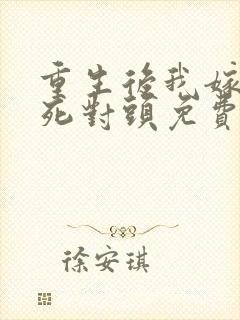 重生後我嫁
死對頭免費
徐安琪